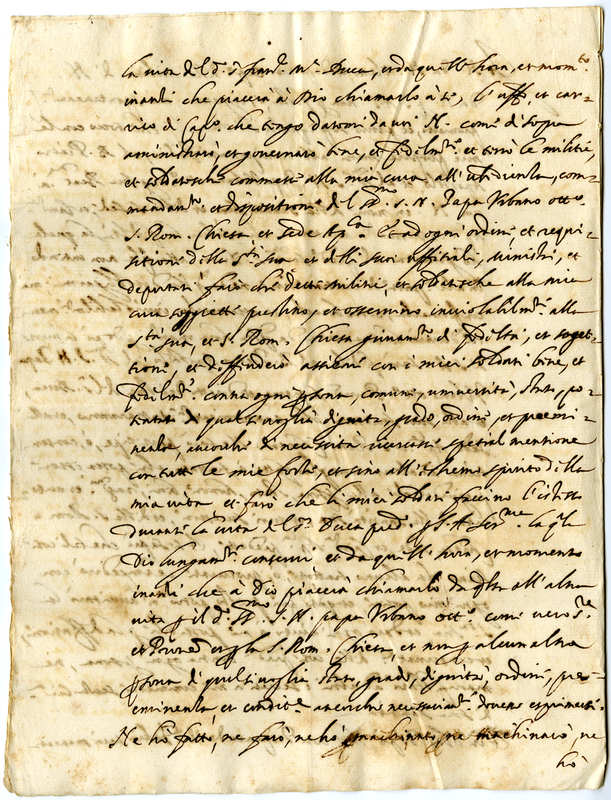 la vita del d. S. Duca, et da quell'hora, et mom.to
inanti che piacerà à Dio chiamarlo à se, l'uff.o et car-
rico di Cap.o che tengo datomi da V. A. come di sopra
aministrarò, et governarò bene, et fidelm.te et terrò le militie,
et soldatesche commesse alla mia cura all'ubidienza, com-
mandam.ti et dispositione del S. N. Papa Urbano ott.o
S. Rom. Chiesa et Sede Ap.ca Et ad ogni ordine et requi-
sitione della S.tà sua et delli suoi offitiali, ministri, et
deputati farò che dette militie, et soldatesche alla mia
cura soggette prestino, et osservino inviolabilm.te alla
S.tà sua, et S. Rom. Chiesa giuram.to di fedeltà, et sogget-
tione, et diffenderò assieme con i miei soldati bene, et
fidelm.te contra ogni persona, comune, università, stato, po-
tentati di qualsivoglia dignità, grado, ordine, et preemi-
nenza, ancorche di necessità ricercasse spetial mentione
con tutte le mie forze, et sino all'estremo spirito della
mia vita et farò che li miei soldati faccino l'istesso
durante la vita del d. S. Duca pred. S. A. Ser.ma la q.le
Dio lungam.te conservi et da quell'hora, et momento
inanti che à Dio piacerà chiamarlo da q.sta all'altra
vita p il d.o S. N. papa Urbano ott.o come vero S.re
et Pnpe d S. Rom. Chiesa, et non p alcun altra
persona di qualsivoglia stato, grado, dignità, ordine, pre-
eminenza et condit.e ancorche necessariam.te dovesse esprimersi.
Ne hò fatto, ne farò, ne hò machinato, ne machinarò, ne
hò